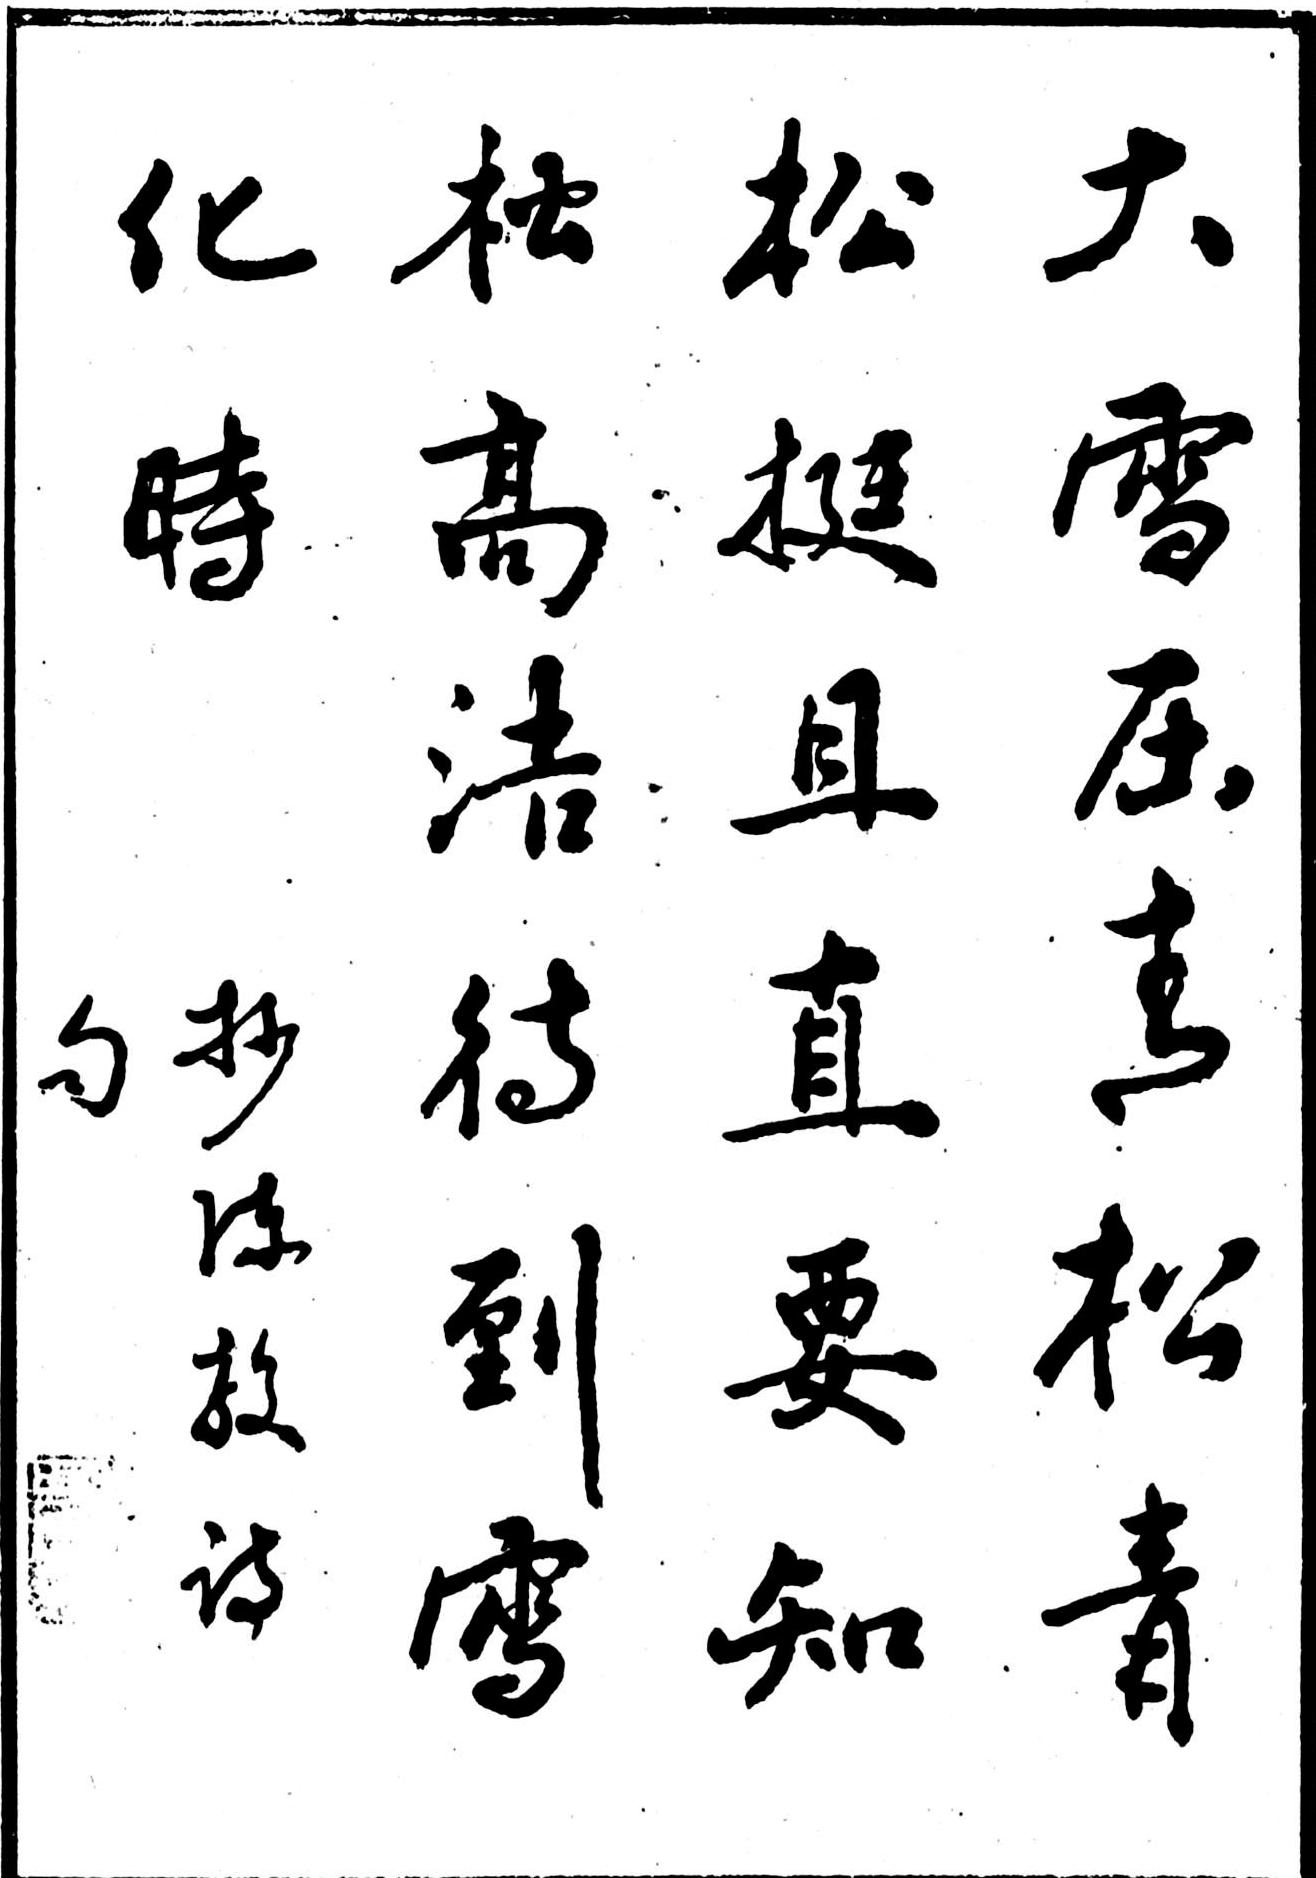 大雪压青松青
松挺且直要知
松高洁待到雪
化時
抄陈毅诗
句